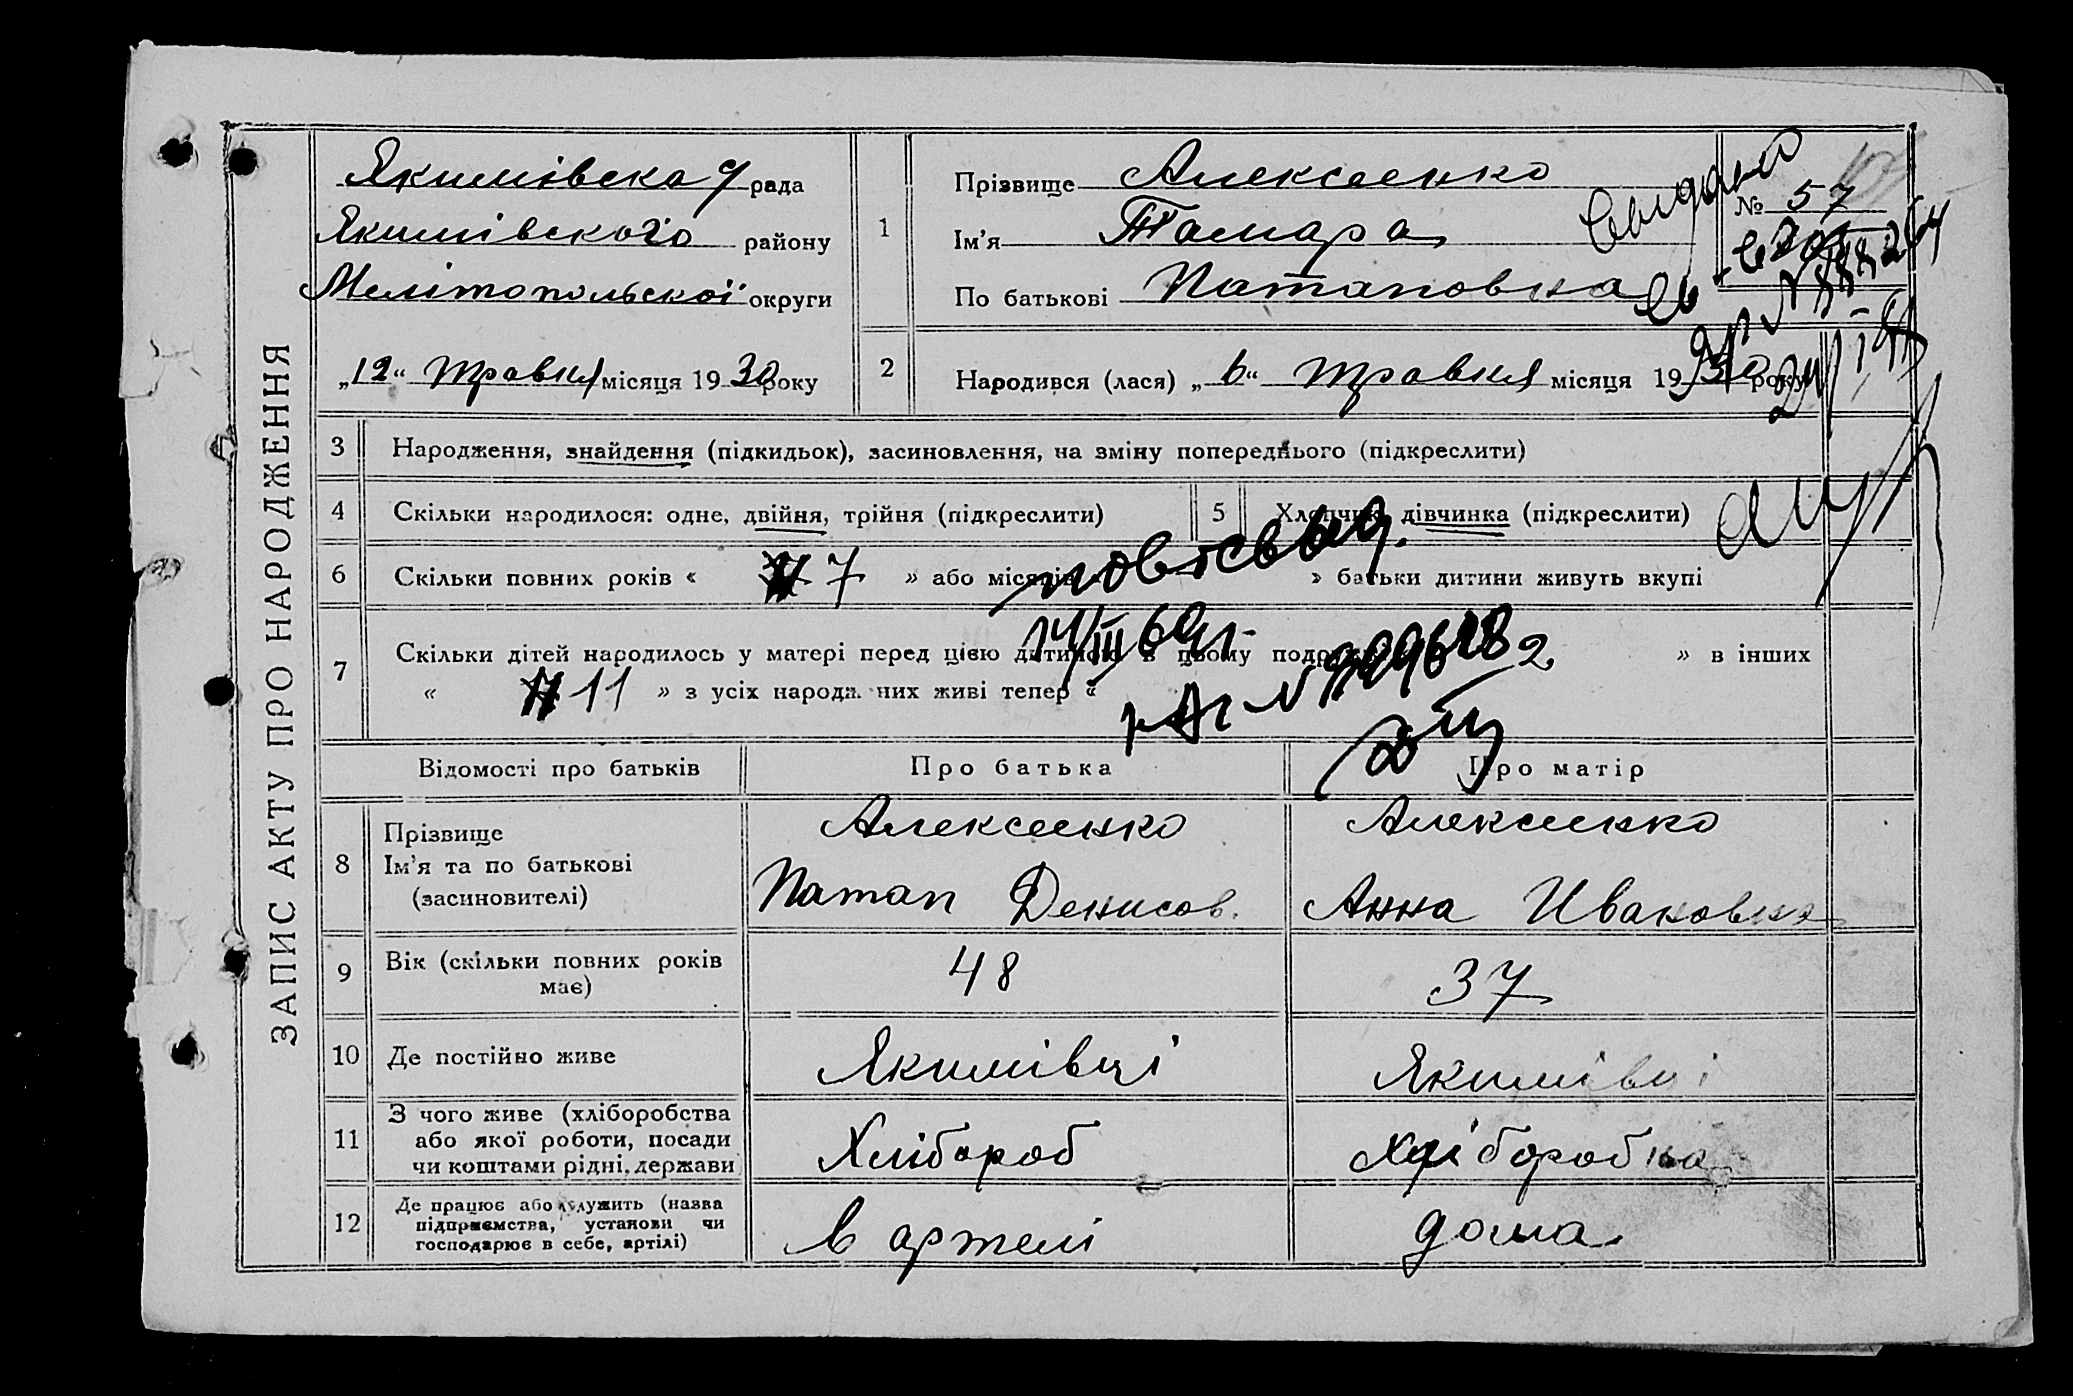 ЗАПИС АКТУ ПРО НАРОДЖЕННЯ
Якимівская рада
Якимівского району
Мелітопольскої округи
„12“ травня місяця 1930 року
1
Прізвище Алексеенко
Ім'я Тамара
По батькові Патаповна
№ 57
2
Народився (лася) „6“ травня місяця 1930 року
3 Народження, знайдення (підкидьок), засиновлення, на зміну попереднього (підкреслити)
4 Скільки народилося: одне, двійня, трійня (підкреслити)
5 Хлопчик, дівчинка (підкреслити)
6 Скільки повних років « 7 » або місяців » батьки дитини живуть вкупі
7 Скільки дітей народилось у матері перед цією дитиною в цьому » в інших
« 11 » з усіх народж них живі тепер «
повт свид.
14/III 69г.
Відомості про батьків Про батька Про матір
8 Прізвище
Ім'я та по батькові
(засиновителі)
Алексеенко
Патап Денисов.
Алексеенко
Анна Ивановна
9 Вік (скільки повних років
має)
48
37
10 Де постійно живе
Якимівці
Якимівці
11 З чого живе (хліборобства
або якої роботи, посади
чи коштами рідні, держави
Хлібороб
хліборобка
12 Де працює або служить (назва
підприємства, установи чи
господарює в себе, артілі)
в артелі
дома